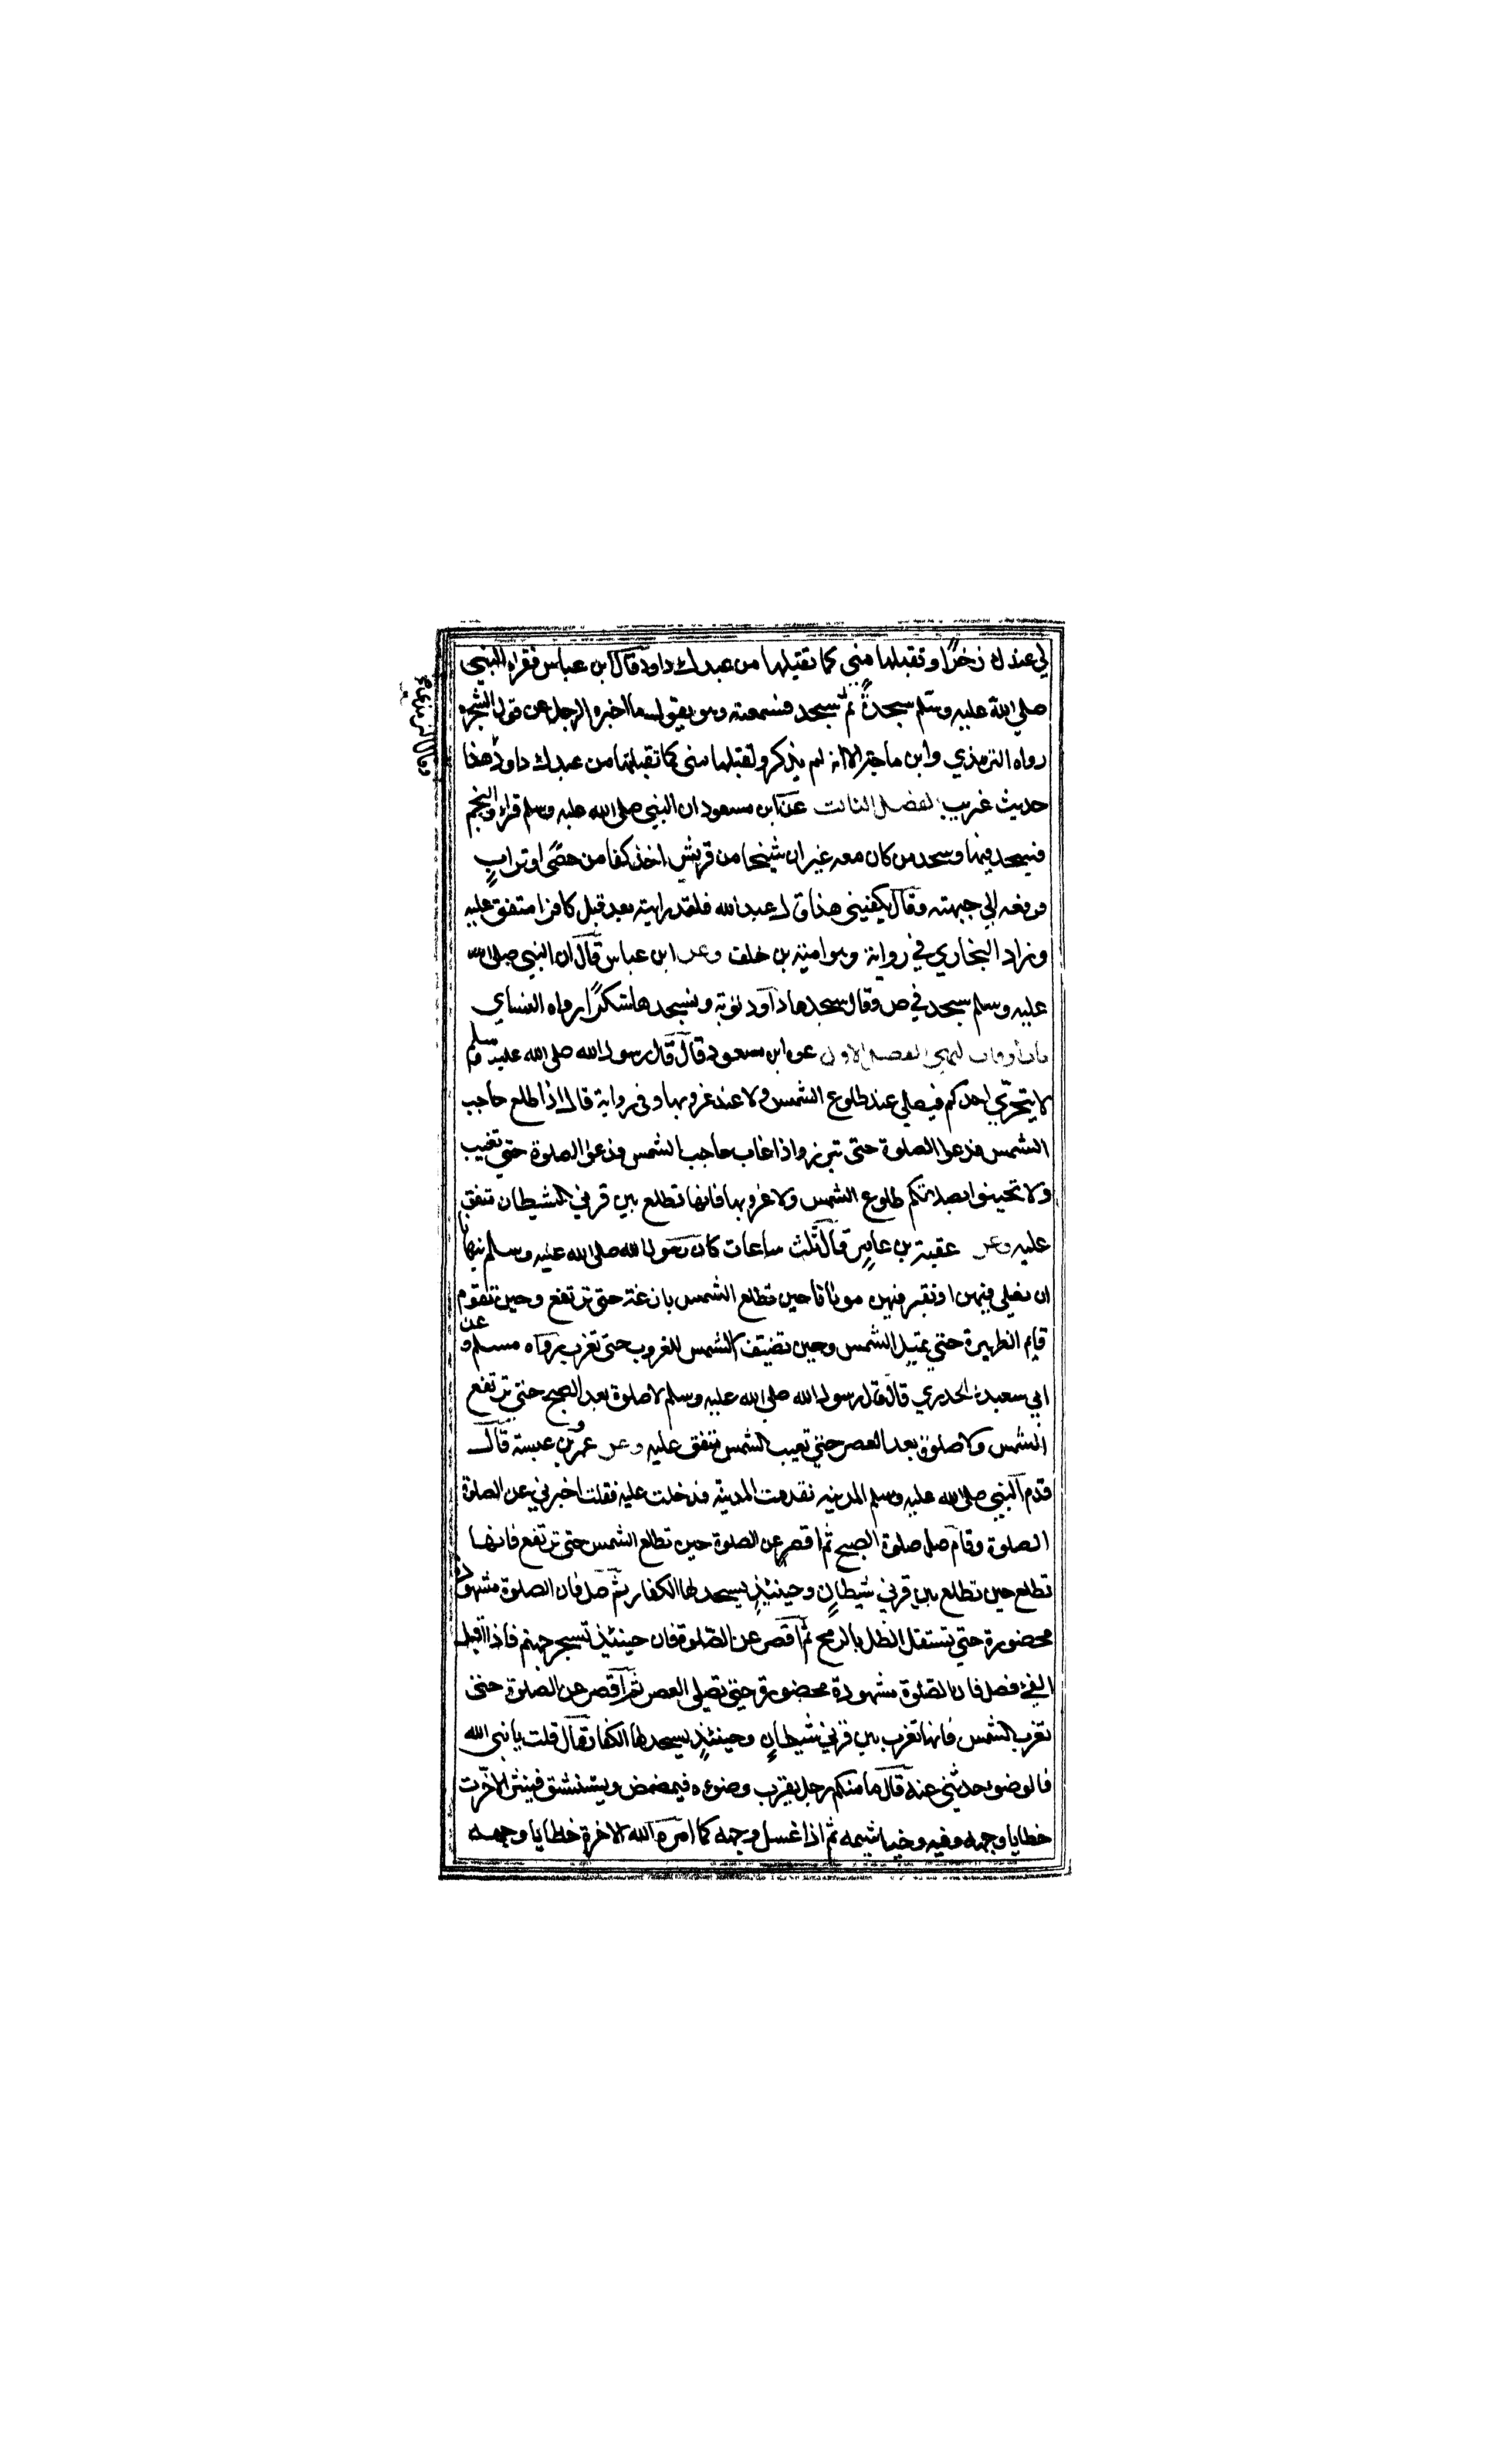 لي عندك ذخرًا وتقبلها مني كما تقبلها من عبدك داود قال ابن عباس فقراء النبي
صلي الله عليه وسلم سجدةً ثم سجد فسمعته وهو يقول ما اخبره الرجل عن قول الشجرة
رواه الترمذي وابن ماجة الا انه لم يذكر وتقبلها مني كما تقبلتها من عبدك داود هذا
وقال الترمذي
حديث غريب الفصل الثالث عن ابن مسعود ان النبي صلي الله عليه وسلم قراء والنجم
فسجد فيها وسجد من كان معه غير ان شيخا من قريش اخذ كفا من حصًي او ترابٍ
فرفعه الي جبهته وقال يكفيني هذا قال عبد الله فلقد رايته بعد قتل كافرا متفق عليه
وزاد البخاري في رواية وهو امية بن خلف وعن ابن عباس قال ان النبي صلي الله
عليه وسلم سجد في ص وقال سجدها داود توبة ونسجدها شكرًا رواه النساي
باب اوقات النهي الفصل الاول عن ابن مسعود قال قال رسول الله صلي الله عليه وسلم
لا يتحرّي احدكم فيصلي عند طلوع الشمس ولا عند غروبها وفي رواية قال اذا طلع حاجب
الشمس فدعوا الصلوة حتي تبرز واذا غاب حاجب الشمس فدعوا الصلوة حتي تغيب
ولا تحينوا بصلاتكم طلوع الشمس ولا غروبها فانها تطلع بين قرني الشيطان متفق
عليه وعن عقبة بن عامر قال ثلث ساعات كان رسول الله صلي الله عليه وسلم ينهانا
ان نصلي فيهن او نقبر فيهن موتانا حين تطلع الشمس بازغة حتي ترتفع وحين تقوم
قايم الظهيرة حتي تميل الشمس وحين تضيف الشمس للغروب حتي تغرب رواه مسلم وعن
ابي سعيد الخدري قال قال رسول الله صلي الله عليه وسلم لا صلوة بعد الصبح حتي ترتفع
الشمس ولا صلوة بعد العصر حتي تغيب الشمس متفق عليه وعن عمرو بن عبسة قال
قدم النبي صلي الله عليه وسلم المدينة فقدمت المدينة فدخلت عليه فقلت اخبرني عن الصلاة
الصلوة وقال صل صلوة الصبح ثم اقصر عن الصلوة حين تطلع الشمس حتي ترتفع فانها
تطلع حين تطلع بين قرني شيطانٍ وحينئذٍ يسجد لها الكفار ثم صل فان الصلوة مشهودة
محضورة حتي يستقل الظل بالرمح ثم اقصر عن الصلوة فان حينئذ تسجر جهنم فاذا اقبل
الفيء فصل فان الصلوة مشهودة محضورة حتي تصلي العصر ثم اقصر عن الصلوة حتي
تغرب الشمس فانها تغرب بين قرني شيطانٍ وحينئذٍ يسجد لها الكفار قال قلت يا نبي الله
فالوضوء حدثني عنه قال ما منكم رجل يقرب وضوءه فيمضمض ويستنشق فينتثر الا خرّت
خطايا وجهه وفيه وخياشيمه ثم اذا غسل وجهه كما امره الله الا خرت خطايا وجهه